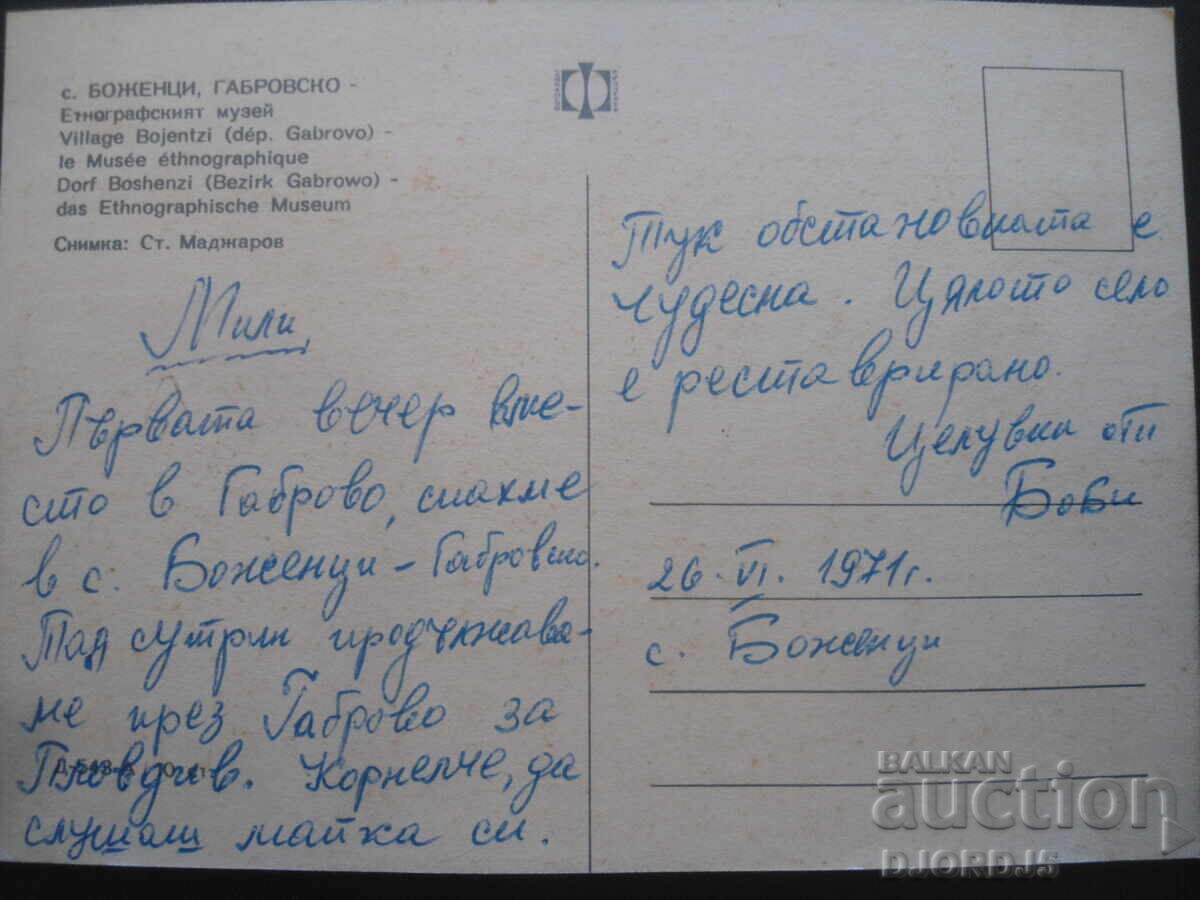 с. БОЖЕНЦИ, ГАБРОВСКО -
Етнографският музей
Village Bojentzi (dép. Gabrovo) -
le Musée éthnographique
Dorf Boshenzi (Bezirk Gabrowo) -
das Ethnographische Museum
Снимка: Ст. Маджаров
Мили,
Първата вечер вме-
сто в Габрово, спахме
в с. Боженци - Габровско.
Тая сутрин продължава-
ме през Габрово за
Пловдив. Корнелче, да
слушаш майка си.
Тук обстановката е
чудесна. Цялото село
е реставрирано.
Целувки от
Боби
26. VI. 1971 г.
с. Боженци
BALKAN
auction
DJORDJ5